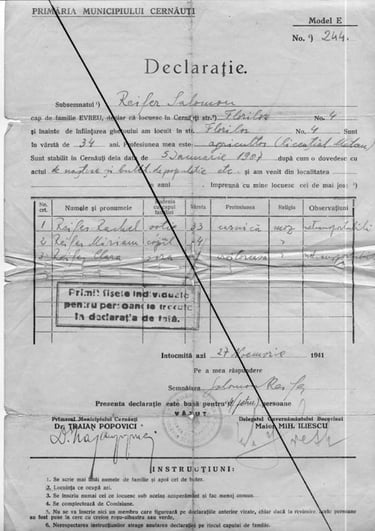 PRIMĂRIA MUNICIPIULUI CERNĂUȚI
Model E
No. ¹) 244.
Declarație.
Subsemnatul ¹) Reifer Salomon
cap de familie EVREU, declar că locuesc în Cernăuți str.¹) Florilor No. 4
și înainte de înființarea ghetoului am locuit în str. Florilor 4 Sunt
în vârstă de 34 ani. Profesiunea mea este agricultor
Sunt stabilit în Cernăuți dela data de 5 Ianuarie 1907 după cum o dovedesc cu
actul de naștere și biletul de populație etc. și am venit din localitatea
anul Împreună cu mine locuesc cei de mai jos: ³)
No. crt. Numele și pronumele Vârsta Profesiunea Religia Observațiuni
1 Reifer Rachel 33 casnică moz
2 Reifer Miriam 4 "
3 Reifer Clara
Primit fișele individuale
pentru persoanele trecute
în declarația de față.
Întocmită azi 27 1941
Pe a mea răspundere
Semnătura Salomon Reifer
Prezenta declarație este bună pentru persoane
VĂZUT
Primarul Municipiului Cernăuți
Dr. TRAIAN POPOVICI
Delegatul Guvernământului Bucovinei
Maior MIH. ILIESCU
INSTRUCȚIUNI:
1. Se scrie mai întâi numele de familie și apoi cel de botez.
2. Locuința ce ocupă azi.
3. Se înscriu numai cei ce locuesc sub același acoperământ și fac menaj comun.
4. Se completează de Comisiune.
5. Nu se va înscrie nici un membru care figurează pe declarațiile anterior vizate, chiar dacă la revizuire, persoane
au fost puse la cerc cu creion roșu-albastru sau verde.
6. Nerespectarea instrucțiunilor atrage anularea declarației pe riscul capului de familie.